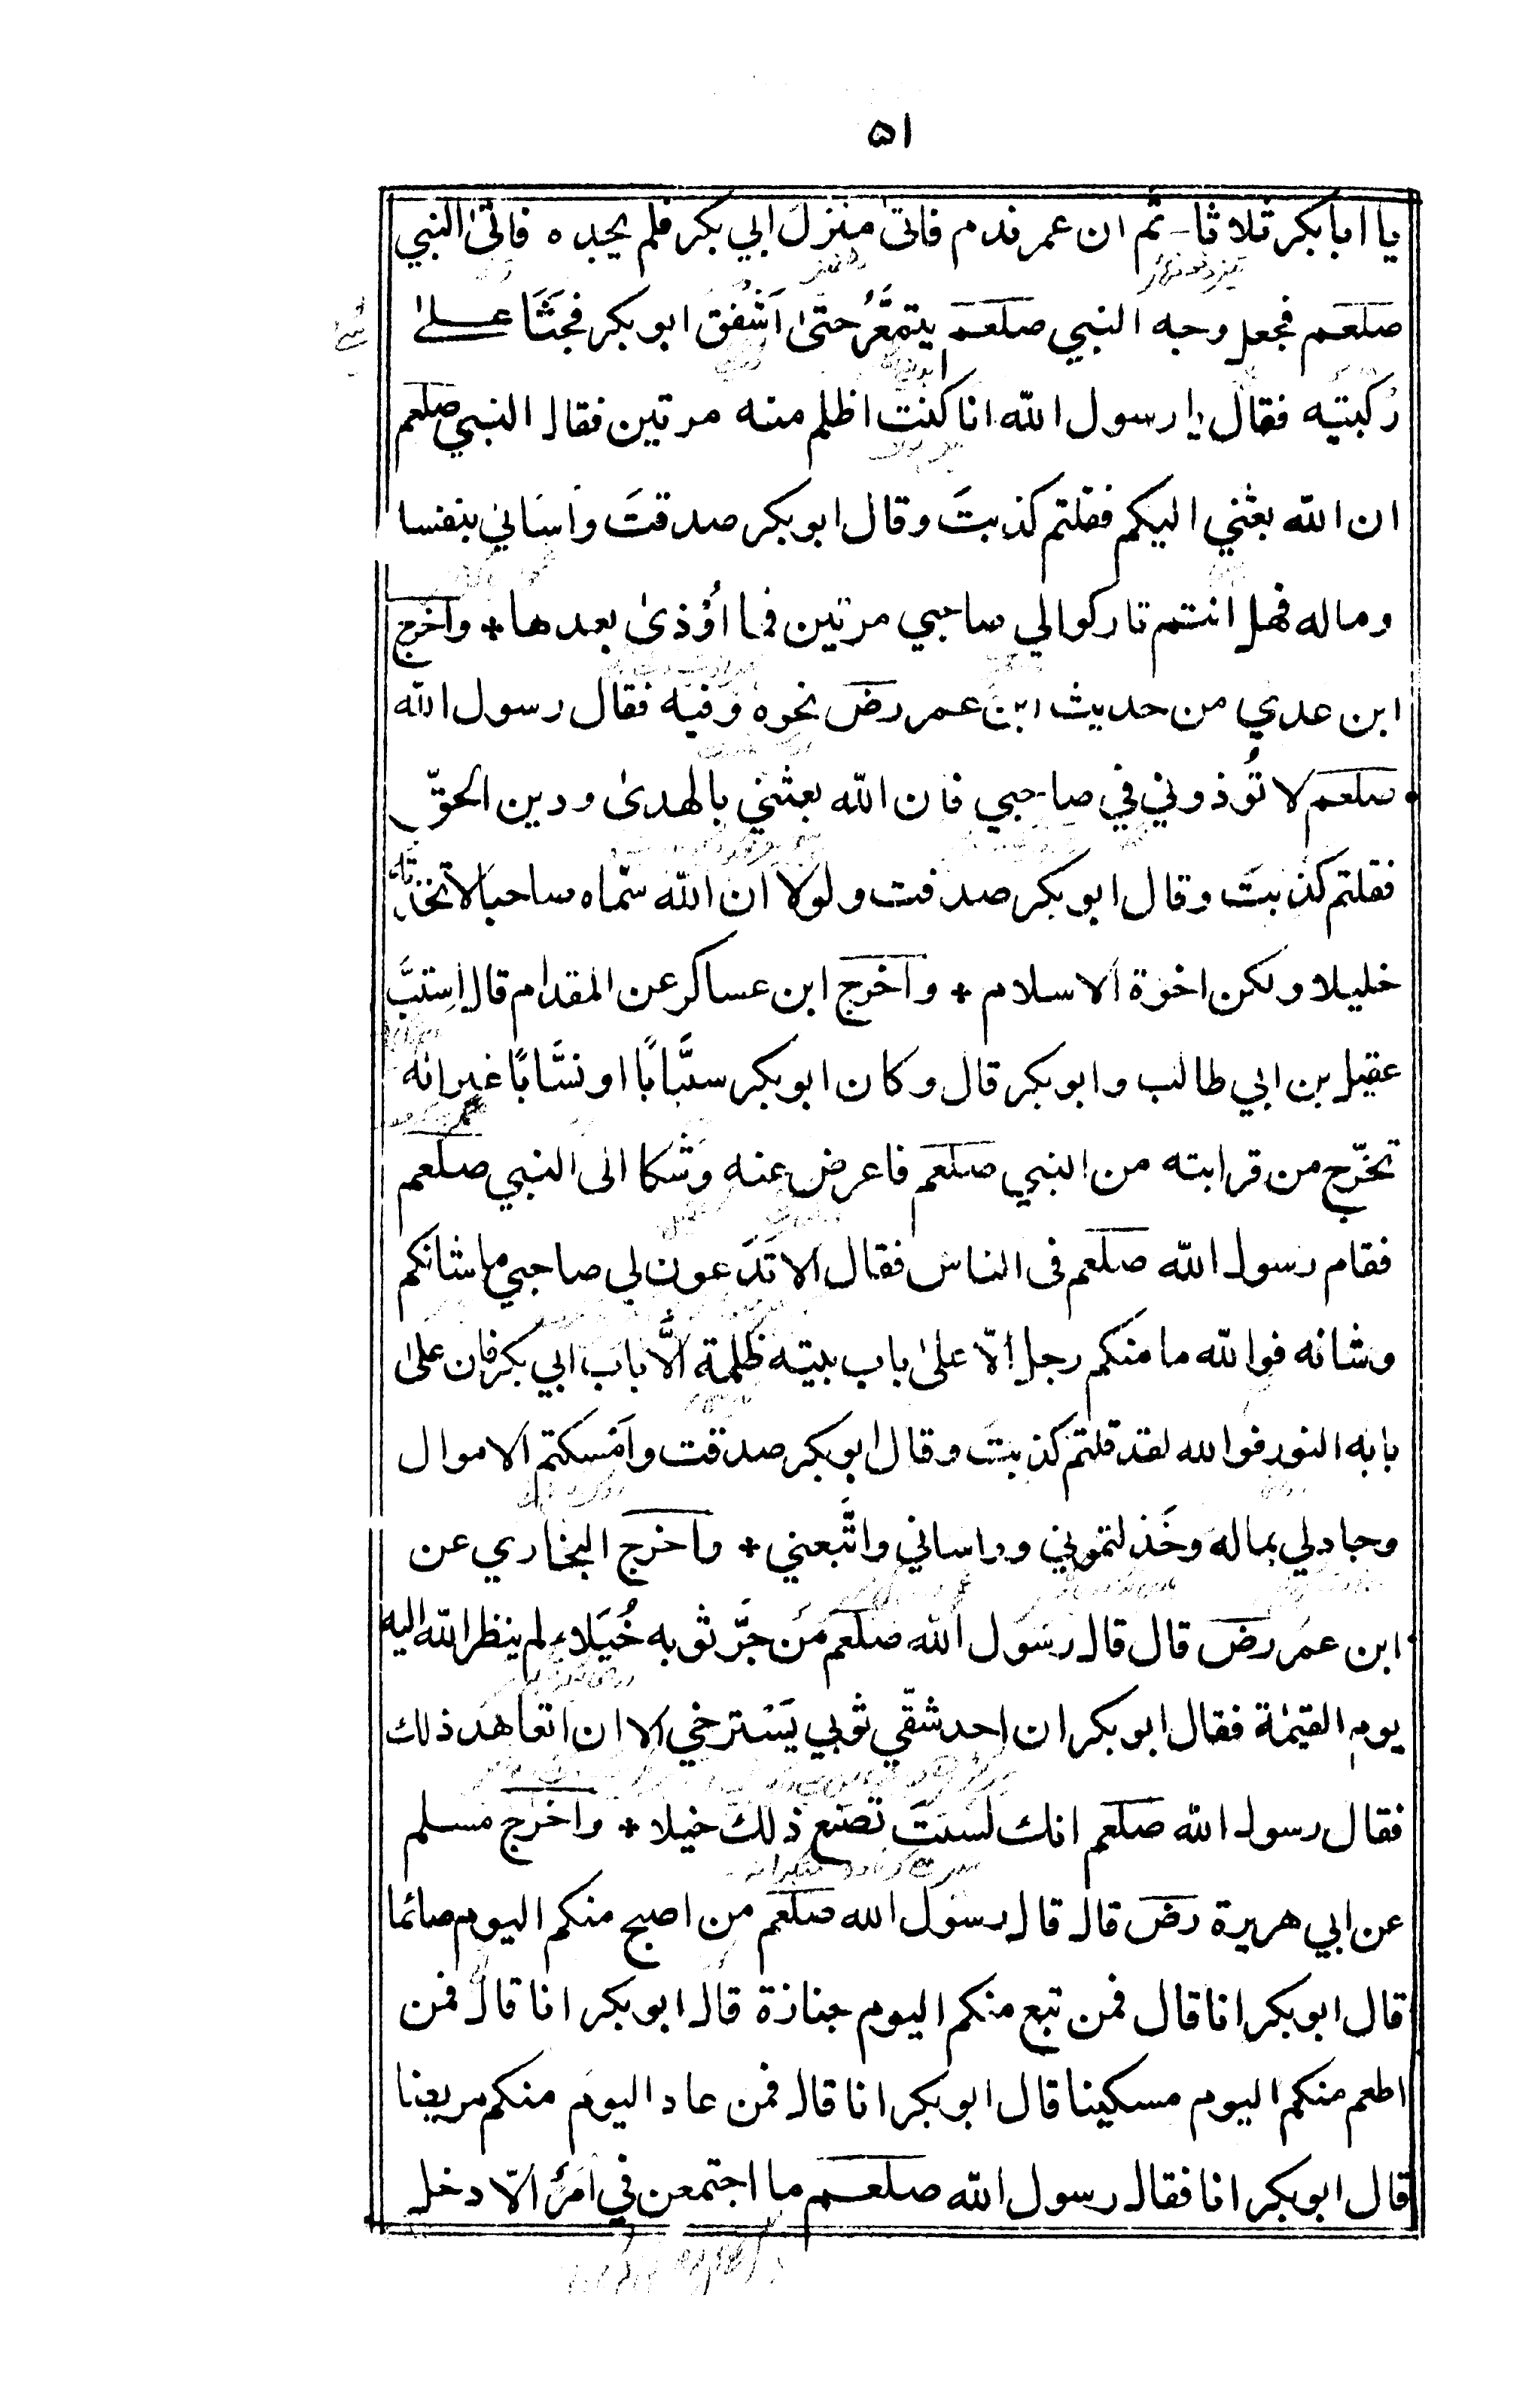 ۵۱
يا ابا بكر ثلاثا ـ ثم ان عمر ندم فاتىٰ منزل ابي بكر فلم يجده فاتىٰ النبي
صلعم فجعل وجه النبي صلعم يتمعَّرُ حتىٰ اَشْفَق ابو بكر فجَثَا علىٰ
رُكبتيه فقال يا رسول الله انا كنت اظلم منه مرتين فقال النبي صلعم
ان الله بعثني اليكم فقلتم كذبتَ وقال ابو بكر صدقتَ واَسَاني بنفسا
وماله فهل انتم تاركوا لي صاحبي مرتين فما اُوْذىٰ بعدها * واخرج
ابن عدي من حديث ابن عمر رض نحوه وَفيه فقال رسول الله
صلعم لا تُوذوني في صاحبي فان الله بعثني بالهدىٰ ودين الحقّ
فقلتم كذبتَ وقال ابو بكر صدقت ولولا ان الله سمّاه صاحبا لاتخذته
خليلا ولكن اخوة الاسلام * واَخرج ابن عساكر عن المقدام قال اِستبَّ
عقيل بن ابي طالب وابو بكر قال وكان ابو بكر سبَّابًا او نسَّابًا غير انه
تحرّج من قرابته من النبي صلعم فاعرض عنه وَشَكا الى النبي صلعم
فقام رسول الله صلعم فى الناس فقال الا تَدَعون لي صاحبي ما شانكم
وشانه فوالله ما منكم رجل اِلّا علىٰ باب بيته ظلمة الَّا باب ابي بكر فان علىٰ
بابه النور فوالله لقد قلتم كذبتَ وقال ابو بكر صدقت واَمْسكتم الاموال
وجاد لي بماله وخَذلتموني وواساني واتَّبعني * واخرج البخاري عن
ابن عمر رض قال قال رسول الله صلعم مَن جَرَّ ثوبه خُيَلاء لم ينظر الله اليه
يوم القيٰمة فقال ابو بكر ان احد شقّي ثوبي يَسْترخي الا ان اتعاهد ذلك
فقال رسول الله صلعم انك لستَ تصنع ذلك خيلا * واخرج مسلم
عن ابي هريرة رض قال قال رسول الله صلعم من اصبح منكم اليوم صائما
قال ابو بكر انا قال فمن تبع منكم اليوم جنازة قال ابو بكر انا قال فمن
اطعم منكم اليوم مسكينا قال ابو بكر انا قال فمن عاد اليوم منكم مريضا
قال ابو بكر انا فقال رسول الله صلعم ما اجتمعن في اَمرُء الّا دخل